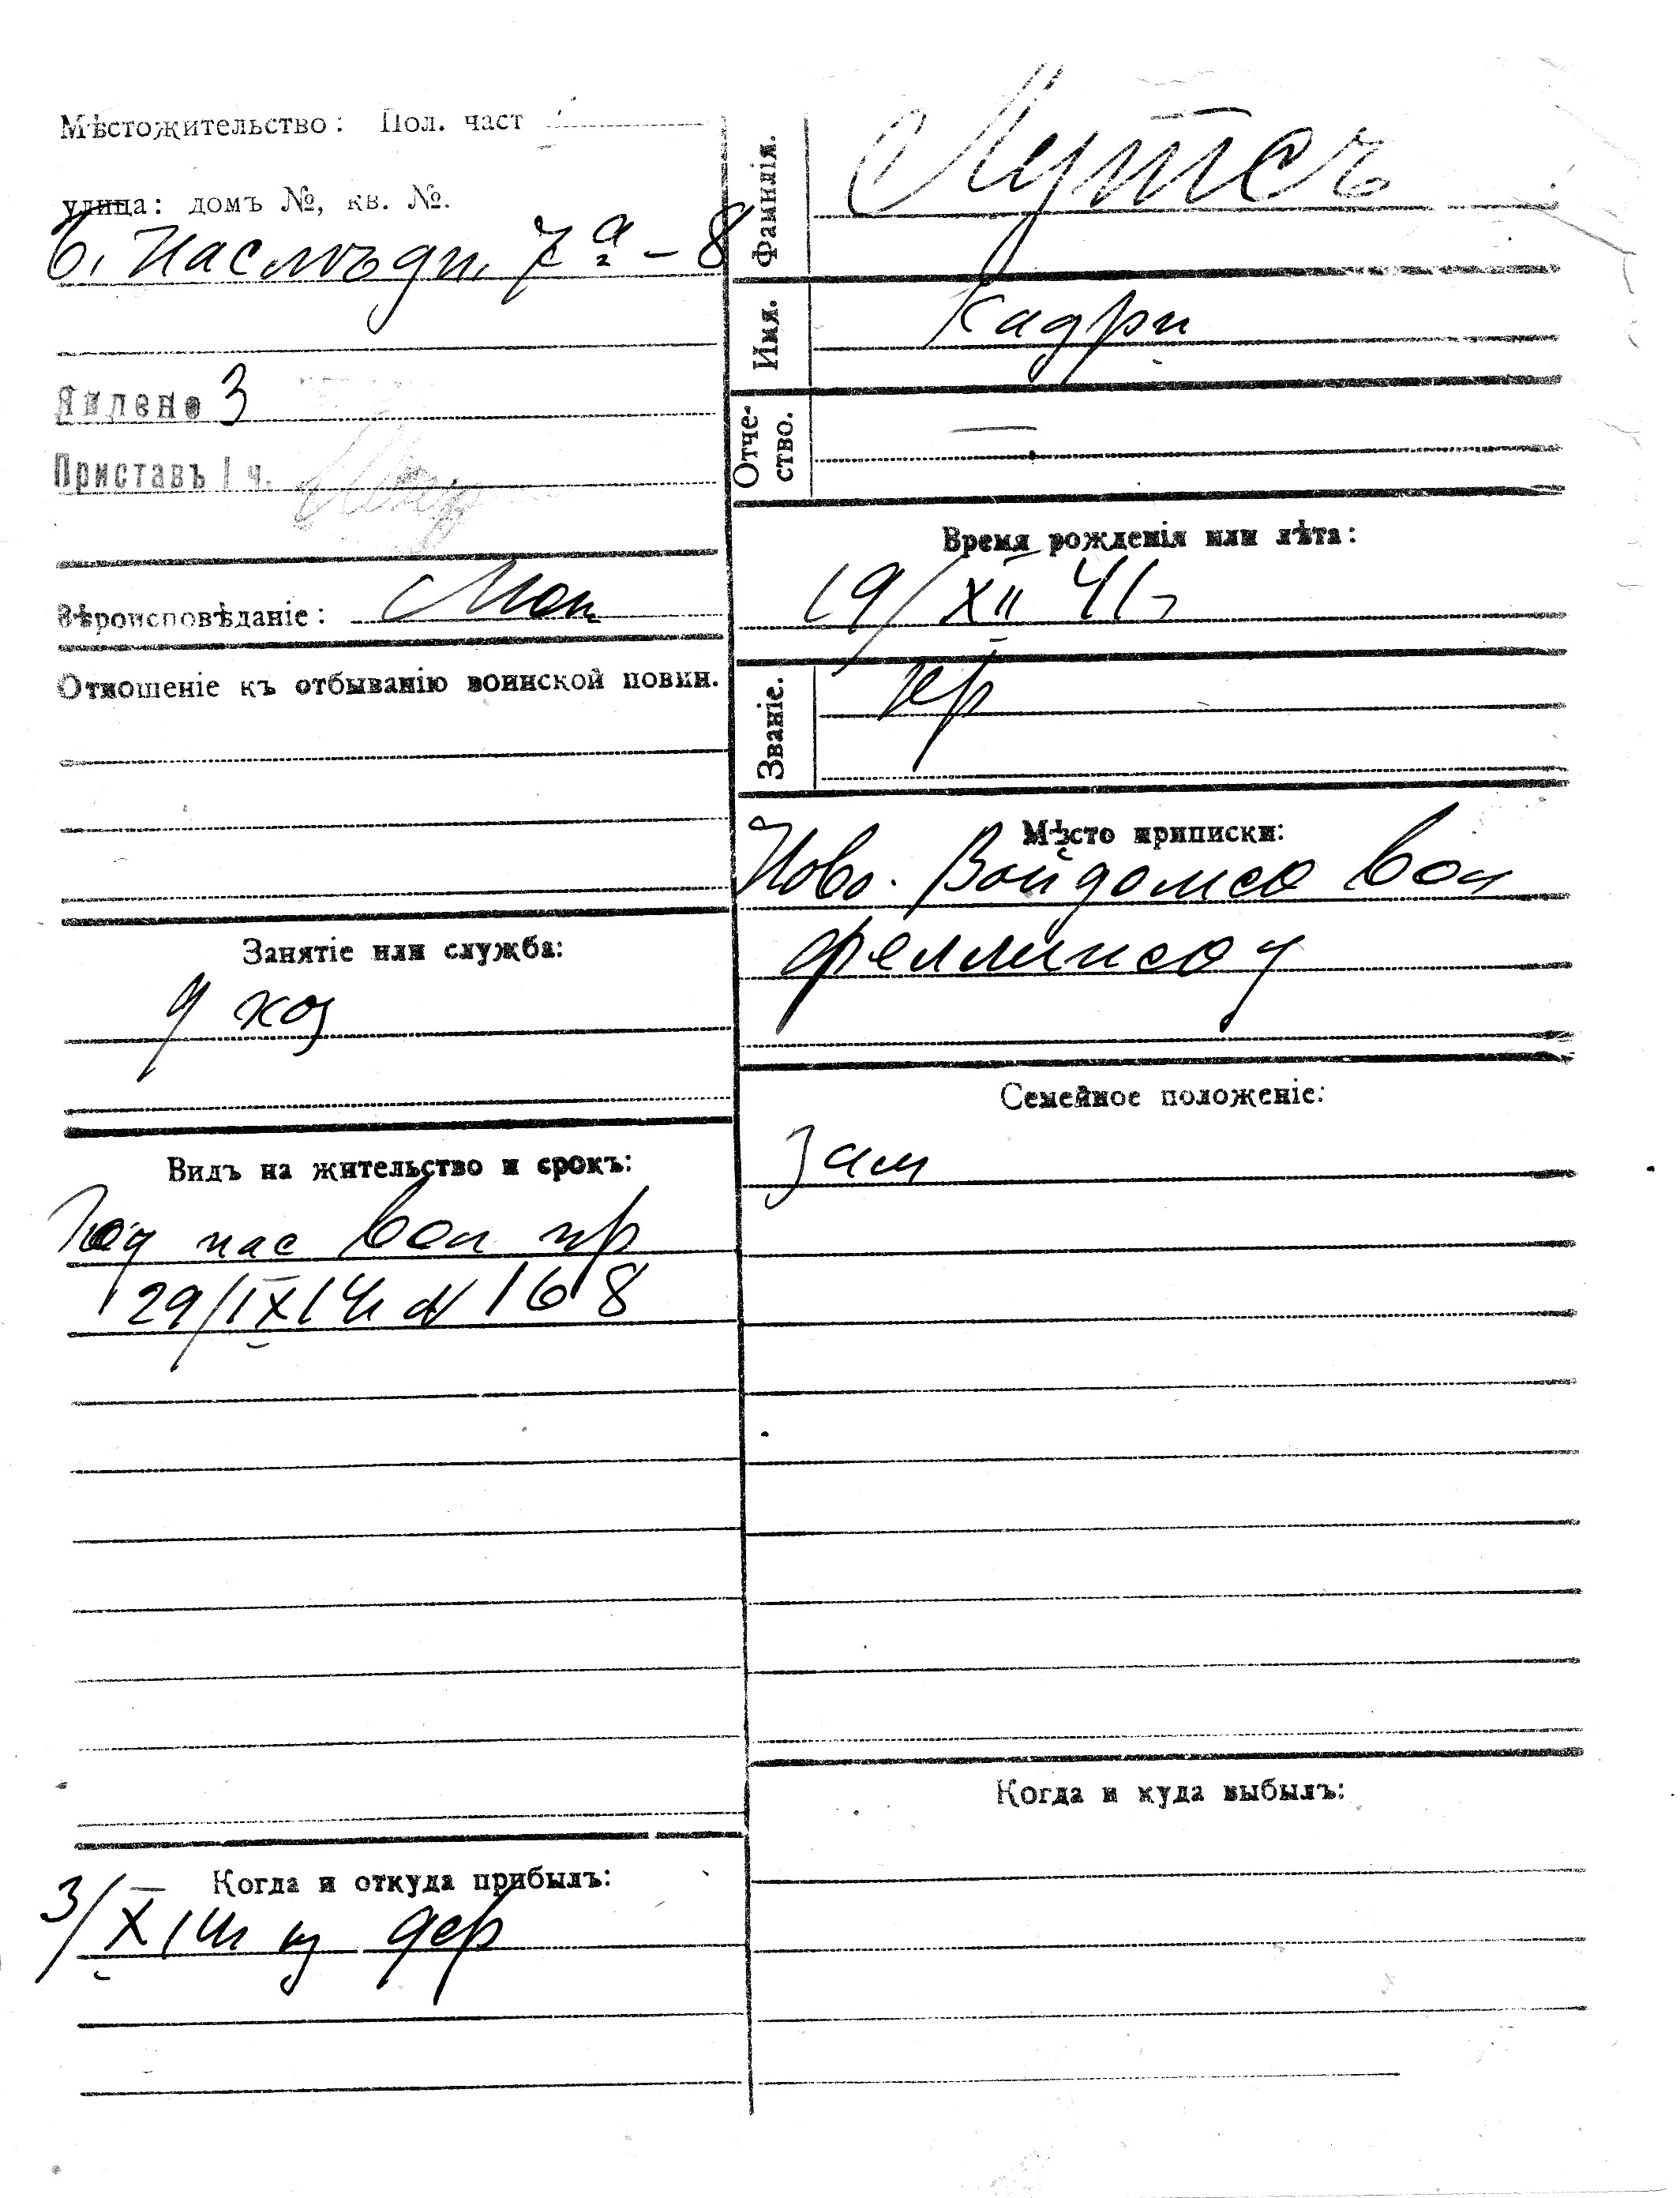 Мѣстожительство: Пол. част
улица: домъ №, кв. №.
б. Наслѣдн. 7а – 8
Явлено 3
Приставъ 1 ч.
Вѣроисповѣданіе: Лют
Отношеніе къ отбыванію воинской повин.
Занятіе или служба:
д хоз
Видъ на жительство и срокъ:
Год пас вол пр
29/IX 14 г № 168
Когда и откуда прибылъ:
3/X 14 г из дер
Фамилія.
Лутсъ
Имя.
Кадри
Отче-
ство.
—
Время рожденія или лѣта:
19/XII 41 г
Званіе.
кр
Мѣсто приписки:
Ново. Войдомск вол
Феллинск у
Семейное положеніе:
зам
Когда и куда выбылъ: